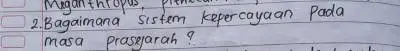 Meganthropus,
2. Bagaimana sistem kepercayaan pada
masa prasejarah ?